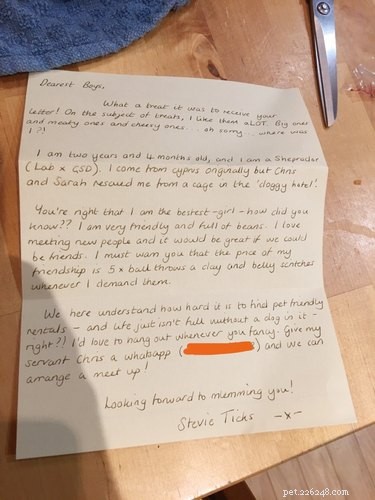 Dearest Boys,
What a treat it was to receive your
letter! On the subject of treats, I like them aLOT. Big ones
and meaty ones and cheesy ones... oh sorry... where was
I?!
I am two years and 4 months old, and I am a Sheprador
(Lab x GSD). I come from Cyprus originally but Chris
and Sarah rescued me from a cage in the 'doggy hotel'.
You're right that I am the bestest-girl - how did you
know?? I am very friendly and full of beans. I love
meeting new people and it would be great if we could
be friends. I must warn you that the price of my
friendship is 5 x ball throws a day and belly scritches
whenever I demand them.
We here understand how hard it is to find pet friendly
rentals - and life just isn't full without a dog in it -
right?! I'd love to hang out whenever you fancy. Give my
servant Chris a whatsapp ( ) and we can
arrange a meet up!
Looking forward to mlemming you!
Stevie Ticks -x-
pet.226248.com